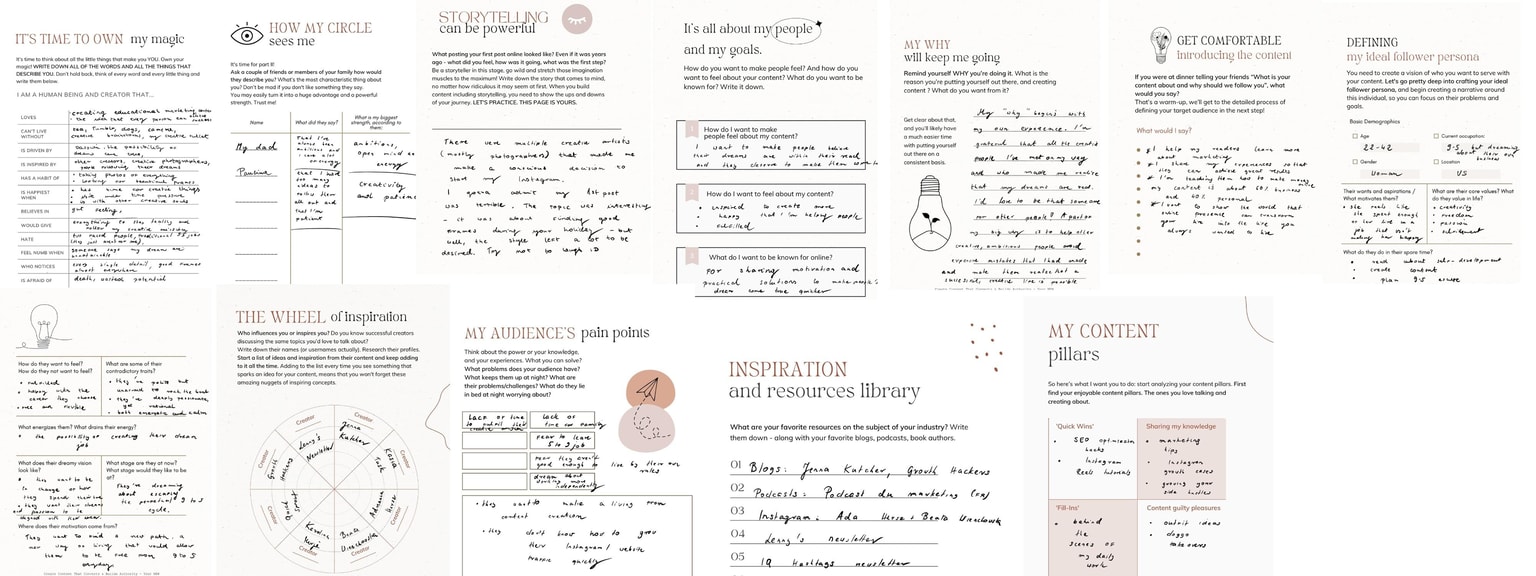 IT'S TIME TO OWN my magic
It's time to think about all the little things that make you YOU. Own your
magic! WRITE DOWN ALL OF THE WORDS AND ALL THE THINGS THAT
DESCRIBE YOU. Don't hold back, think of every word and every little thing and
write them below.
I AM A HUMAN BEING AND CREATOR THAT...
LOVES
creating educational marketing
CAN'T LIVE
WITHOUT
sea, Tumblr, dogs, camera,
creative brainstorms, my creative
IS DRIVEN BY
passion, the possibility of
IS INSPIRED BY
other creators, creative photographers,
HAS A HABIT OF
• taking photos of everything
IS HAPPIEST
WHEN
• has time for creative things
• is with other creative souls
BELIEVES IN
gut feeling,
WOULD GIVE
everything to stay fully
follow my creative mission
HATE
FEEL NUMB WHEN
someone says my dreams are
WHO NOTICES
every single detail, good
almost everywhere
IS AFRAID OF
death, wasted potential
HOW MY CIRCLE
sees me
It's time for part II!
Ask a couple of friends or members of your family how would
they describe you? What's the most characteristic thing about
you? Don't be mad if you don't like something they say.
You may easily turn it into a huge advantage and a powerful
strength. Trust me!
Name
What did they say?
What is my biggest
strength, according to
them:
My dad
that I've
always been
ambitious and
ambitions,
open mind
energy
Paulina
that I had
too many
ideas to
them
all out and
that I'm
patient
creativity
and patience
STORYTELLING
can be powerful
What posting your first post online looked like? Even if it was years
ago - what did you feel, how was it going, what was the first step?
Be a storyteller in this stage, go wild and stretch those imagination
muscles to the maximum! Write down the story that comes to mind,
no matter how ridiculous it may seem at first. When you build
content including storytelling, you need to show the ups and downs
of your journey. LET'S PRACTICE. THIS PAGE IS YOURS.
There were multiple creative artists
(mostly photographers) that made me
make a conscious decision to
start my Instagram.
I gotta admit my 1st post
was terrible. The topic was interesting
- it was about finding good
frames during your holiday - but
well, the style left a lot to be
desired. Try not to laugh :D
It's all about my people
and my goals.
How do you want to make people feel? And how do you
want to feel about your content? What do you want to be
known for? Write it down.
1
How do I want to make
people feel about my content?
I want to make people believe
their dreams are within their reach
2
How do I want to feel about my content?
• inspired to create more
• happy that I'm helping people
• fulfilled
3
What do I want to be known for online?
For sharing motivation and
practical solutions to make people's
dream come true quicker
MY WHY
will keep me going
Remind yourself WHY you're doing it. What is the
reason you're putting yourself out there, and creating
content ? What do you want from it?
Get clear about that,
and you'll likely have
a much easier time
with putting yourself
out there on a
consistent basis.
My "why" begins with
my own experience. I'm
grateful that all the creative
people I've met on my way
and who made me realize
that my dreams are real.
I'd love to be that someone
for other people! A part of
my big why is to help other
creative, ambitious people avoid
expensive mistakes that I had made
and make them realize that a
successful, creative life is possible
GET COMFORTABLE
introducing the content
If you were at dinner telling your friends "What is your
content about and why should we follow you", what
would you say?
That's a warm-up, we'll get to the detailed process of
defining your target audience in the next step!
What would I say?
I help my readers learn more
about marketing
I share my experiences so that
they can avoid great
I'm teaching them how to make
my content is about 60% business
and 40% personal
I want to show the world that
online presence can transform
your life into the life you
always wanted to live
DEFINING
my ideal follower persona
You need to create a vision of who you want to serve with
your content. Let's go pretty deep into crafting your ideal
follower persona, and begin creating a narrative around
this individual, so you can focus on their problems and
goals.
Basic Demographics
Age
22-42
Current occupation:
9-5 but dreaming
about their own
business
Gender
Woman
Location
US
Their wants and aspirations /
What motivates them?
• she feels like
she spent enough
of her life in a
job that isn't
making her happy
What are their core values? What
do they value in life?
• creativity
• freedom
• passion
What do they do in their spare time?
• read about self-development
• create content
• plan 9-5 escape
How do they want to feel?
How do they not want to feel?
• fulfilled
• happy with the
career they choose
• free and flexible
What are some of their
contradictory traits?
• they're polite but
• they're deeply passionate,
yet rational
• both energetic and calm
What energizes them? What drains their energy?
• the possibility of creating their dream
job
What does their dreamy vision
look like?
• they want to be
in charge of how
they spend their time
What stage are they at now?
What stage would they like to be
at?
They're dreaming
about escaping
the perpetual 9 to 5
cycle.
Where does their motivation come from?
They want to find a new path, a
new way of living that would allow
them to be free from 9 to 5
everyday
THE WHEEL of inspiration
Who influences you or inspires you? Do you know successful creators
discussing the same topics you'd love to talk about?
Write down their names (or usernames actually). Research their profiles.
Start a list of ideas and inspiration from their content and keep adding
to it all the time. Adding to the list every time you see something that
sparks an idea for your content, means that you won't forget these
amazing nuggets of inspiring concepts.
Creator
Jenna
Kutcher
Creator
Kasia
Creator
Creator
Creator
Creator
Creator
Growth
Hackers
Creator
Lenny's
Newsletter
MY AUDIENCE'S pain points
Think about the power or your knowledge,
and your experiences. What you can solve?
What problems does your audience have?
What keeps them up at night? What are
their problems/challenges? What do they lie
in bed at night worrying about?
lack of time
to fulfill their
lack of
time for family
fear to leave
5 to 9 job
fear they aren't
good enough to
live by their own
rules
dream about
working more
independently
• they want to make a living from
content creation
• they don't know how to grow
their Instagram / website
traffic quickly
INSPIRATION
and resources library
What are your favorite resources on the subject of your industry? Write
them down - along with your favorite blogs, podcasts, book authors.
01 Blogs: Jenna Kutcher, Growth Hackers
02 Podcasts: Podcast do marketing
03 Instagram: Ada
04 Lenny's newsletter
05 IQ Hashtags newsletter
MY CONTENT
pillars
So here's what I want you to do: start analyzing your content pillars. First
find your enjoyable content pillars. The ones you love talking and
creating about.
'Quick Wins'
• SEO optimization
hacks
• Instagram
Reels tutorials
Sharing my knowledge
• marketing
tips
• Instagram
growth cases
• growing your
side hustles
'Fill-Ins'
• behind
the
scenes of
my daily
work
Content guilty pleasures
• outfit ideas
• doggo
takeovers